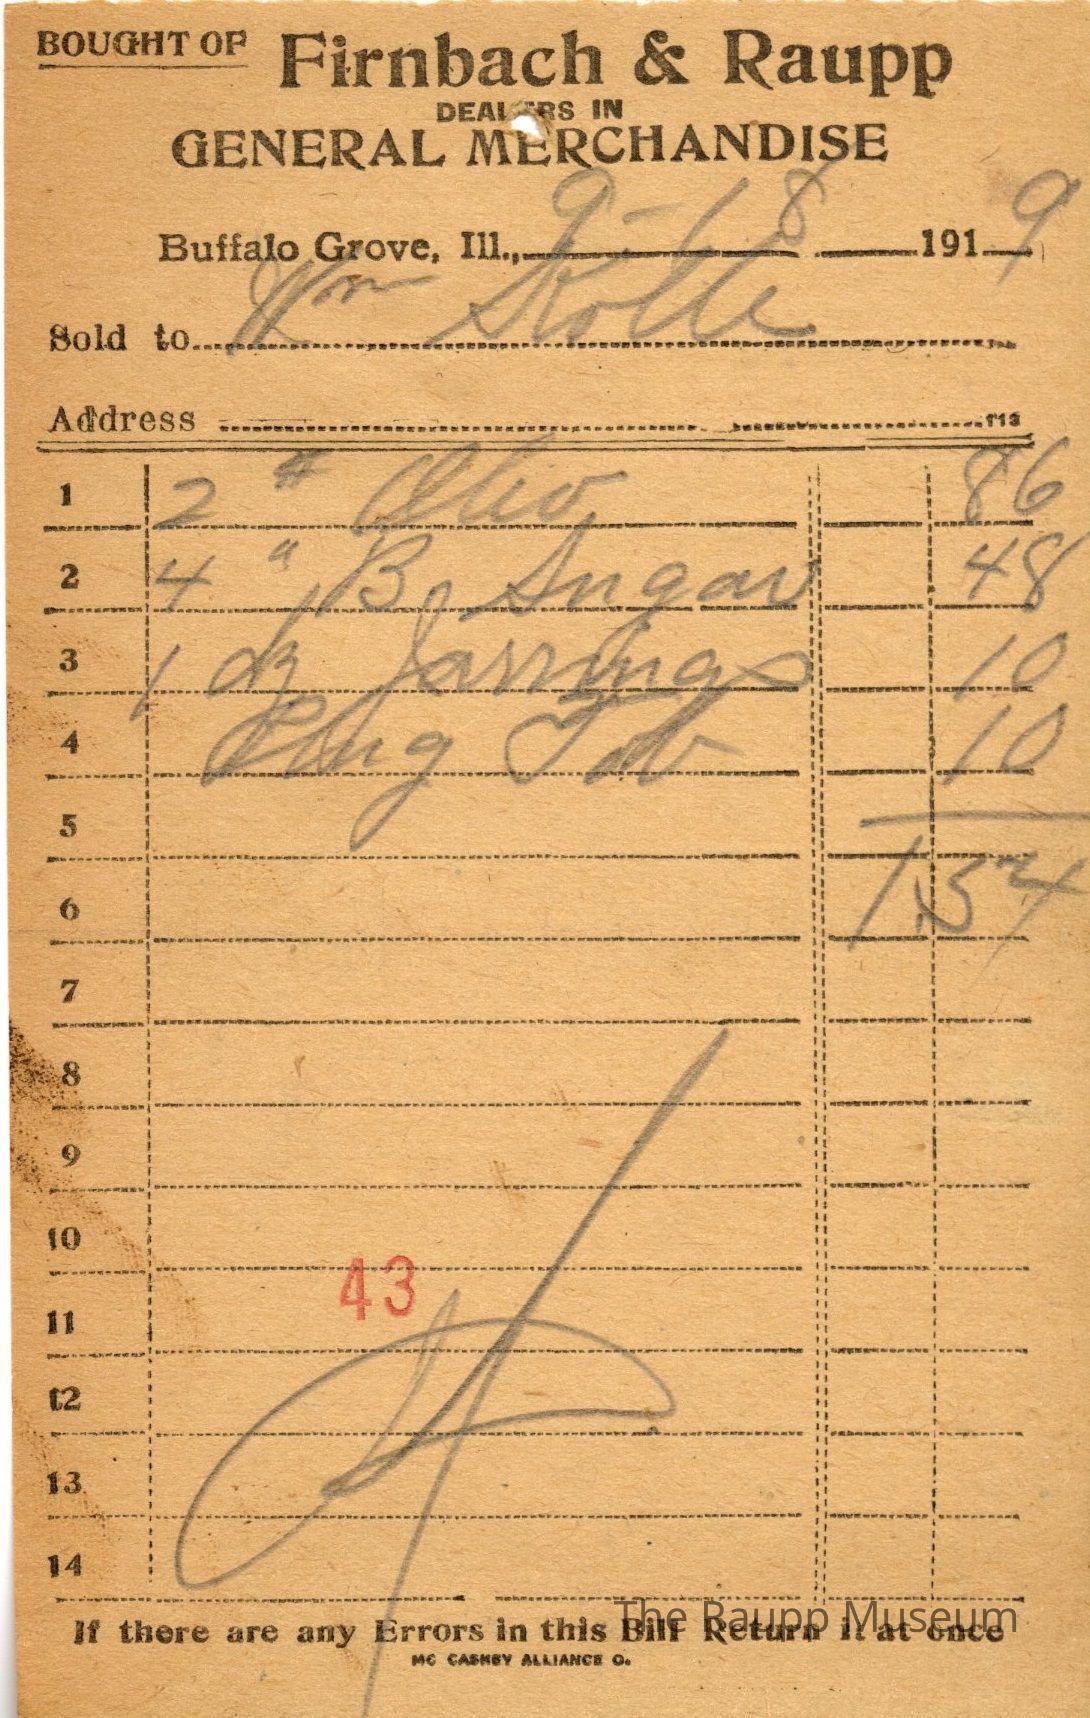 BOUGHT OF Firnbach & Raupp
DEALERS IN
GENERAL MERCHANDISE
Buffalo Grove, Ill., 9-18 1919
Sold to Wm
Address
1 2 # Oleo 86
2 4 " B. Sugar 48
3 1 dz Jarrings 10
4 Plug Tob 10
5
6 1.54
7
8
9
10
43
11
12
13
14
If there are any Errors in this Bill Return it at once
The Raupp Museum
MC CASKEY ALLIANCE O.